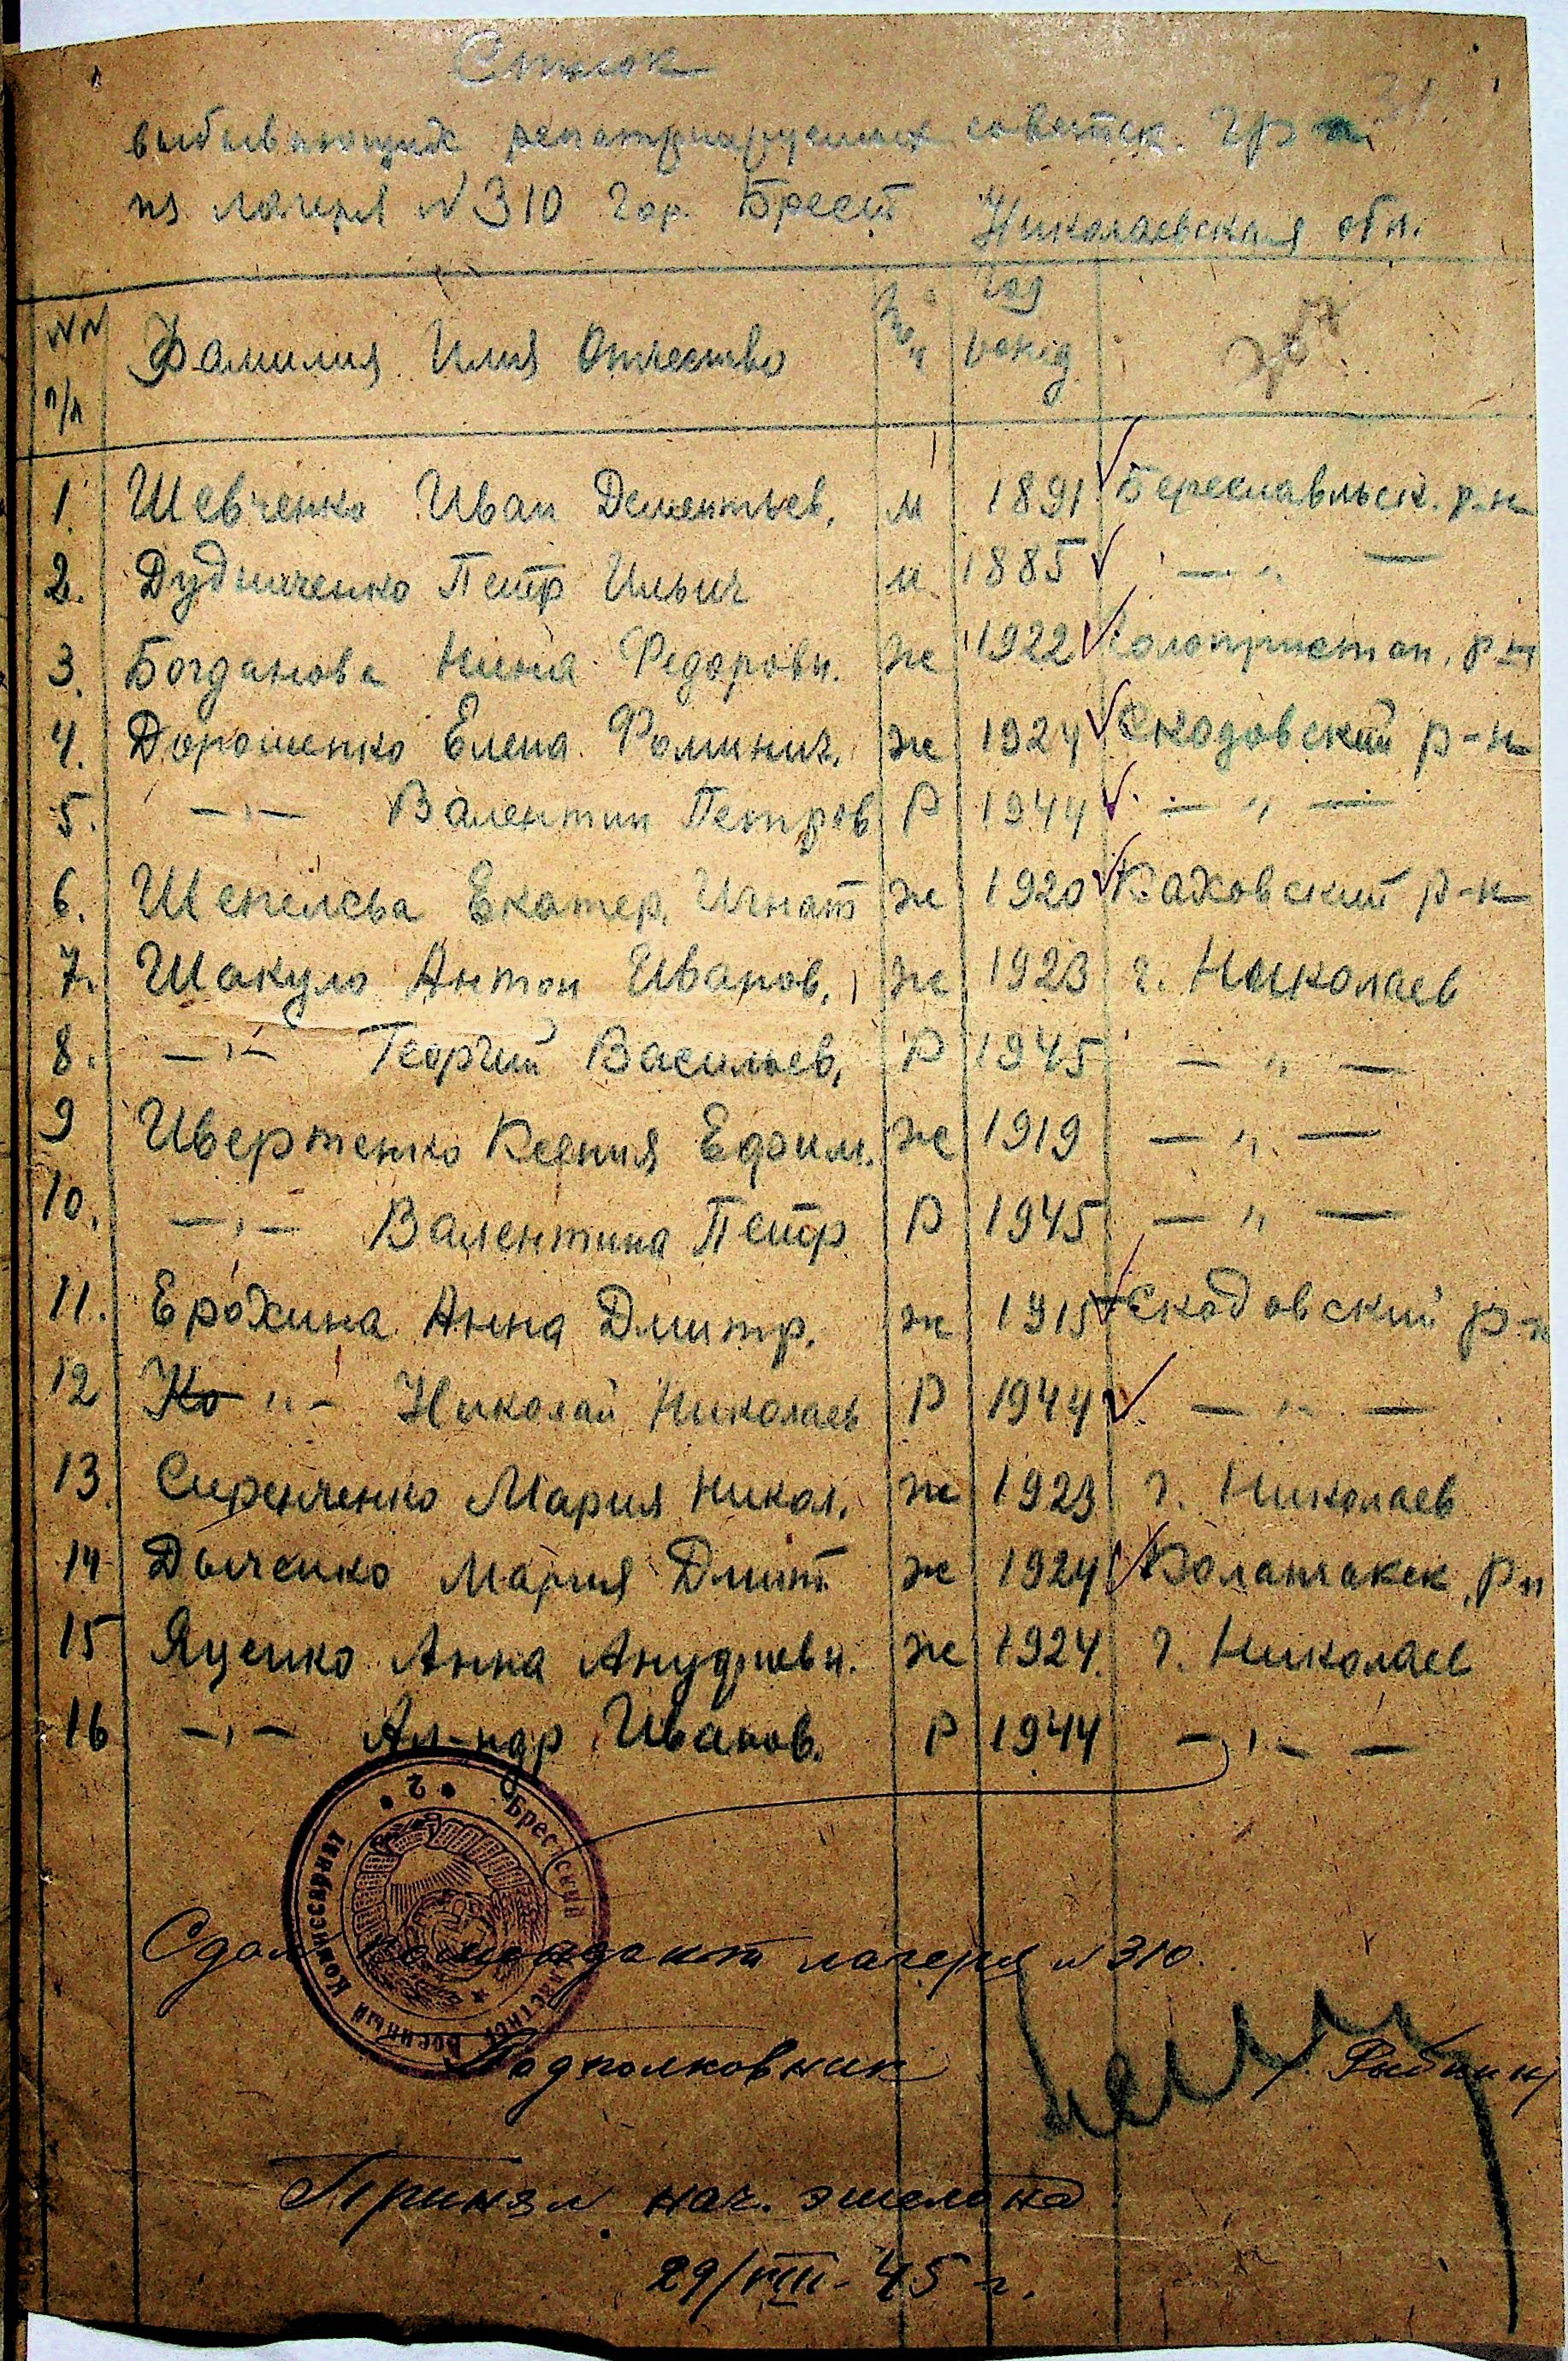 Список
выбывающих репатриируемых советск. гр-н
из лагеря N 310 гор. Брест Николаевская обл.
NN п/п Фамилия Имя Отчество Год рожд.
1. Шевченко Иван Дементьев. м 1891 Береславльск. р-н
2. Дудниченко Петр Ильич м. 1885 — „ —
3. Богданова Нина Федоровн. ж 1922 Голопристан. р-н
4. Дорошенко Елена Фоминич. ж 1924 Скадовский р-н
5. — „ — Валентин Петров Р 1944 — „ —
6. Шепелева Екатер. Игнат ж 1920 Каховский р-н
7. Шакуло Антон Иванов. ж 1923 г. Николаев
8. — „ — Георгий Васильев. Р 1945 — „ —
9 Ивертенко Ксения Ефим. ж 1919 — „ —
10. — „ — Валентина Петр Р 1945 — „ —
11. Ерохина Анна Дмитр. ж 1915 Скадовский р-н
12 Ко „ — Николай Николаев Р 1944 — „ —
13. Сиренченко Мария Никол. ж 1923 г. Николаев
14 Дыченко Мария Дмит ж 1924 Каланчакск. р-н
15 Яценко Анна Ануфриевн. ж 1924. г. Николаев
16 — „ — Ал-ндр Иванов. Р 1944 — „ —
Брестский Областной Военный Комиссариат 2
Сдал комендант лагеря N 310.
Подполковник / Рыбкин/
Принял нач. эшелона
29/VIII-45 г.